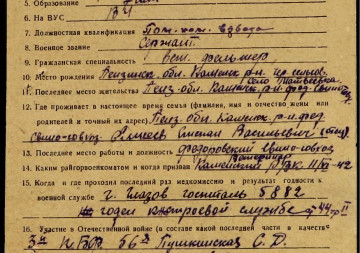 5. Образование
6. На ВУС ВЧ
7. Должностная квалификация Пом. ком. взвода
8. Военное звание Сержант
9. Гражданская специальность Вет. фельдшер
10. Место рождения Пензинск. обл. Каменск. р-н
Последнее место жительства Пенз. обл. Каменск. р-н
12. Где проживает в настоящее время семья (фамилия, имя и отчество жены или
родителей и точный их адрес) Пенз. обл. Каменск. р-н фед.
Свино-совхоз Степан Васильевич (отец)
13. Последнее место работы и должность федоровский свино-совхоз
14. Каким райгорвоенкоматом и когда призван Каменский РВК 42
15. Когда и где проходил последний раз медкомиссию и результат годности к
военной службе г. Глазов госпиталь 5882
годен к строевой службе 44 г.
16. Участие в Отечественной войне (в составе какой последней части в качестве
56 Пушкинская С.Д.